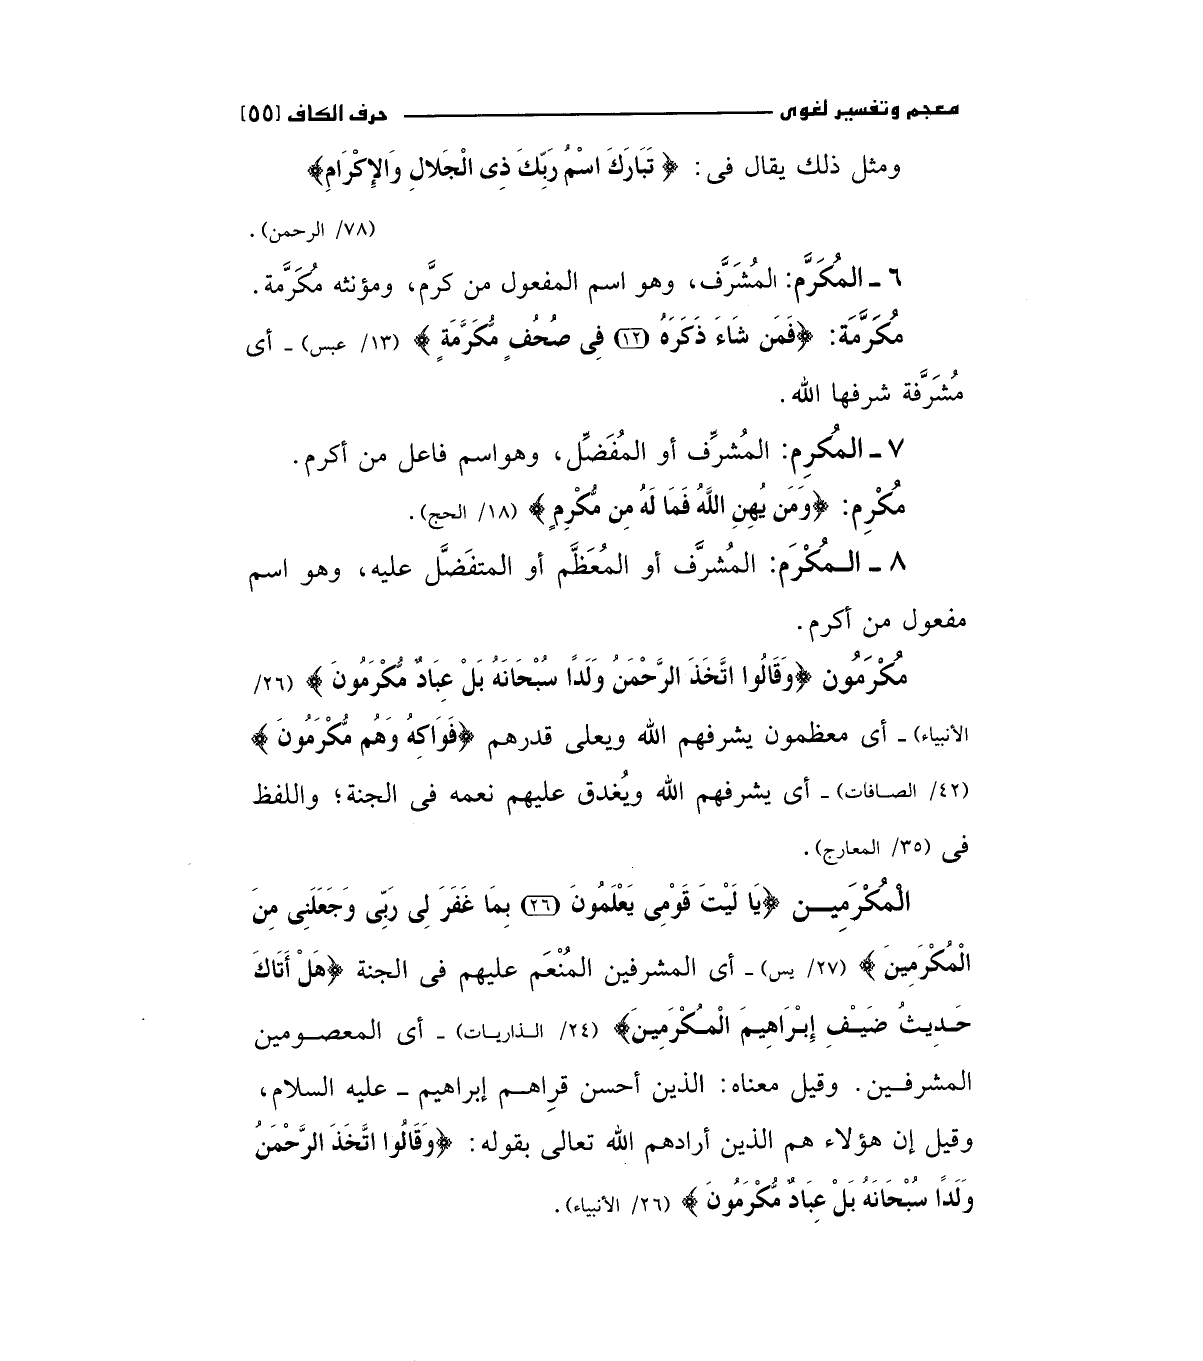 معجم وتفسير لغوى ـــــــ حرف الكاف [٥٥]
ومثل ذلك يقال فى: ﴿ تَبَارَكَ اسْمُ رَبِّكَ ذِى الْجَلالِ وَالإِكْرَامِ﴾
(٧٨/ الرحمن).
٦ ـ المُكَرَّم: المُشَرَّف، وهو اسم المفعول من كرَّم، ومؤنثه مُكَرَّمة.
مُكَرَّمَة: ﴿فَمَن شَاءَ ذَكَرَهُ (١٢) فِى صُحُفٍ مُّكَرَّمَةٍ ﴾ (١٣/ عبس) ـ أى
مُشَرَّفة شرفها الله.
٧ ـ المُكرِم: المُشرِّف أو المُفَضِّل، وهواسم فاعل من أكرم.
مُكْرِم: ﴿وَمَن يُهِنِ اللَّهُ فَمَا لَهُ مِن مُّكْرِمٍ ﴾ (١٨/ الحج).
٨ ـ المُكْرَم: المُشرَّف أو المُعَظَّم أو المتفَضَّل عليه، وهو اسم
مفعول من أكرم.
مُكْرَمُون ﴿وَقَالُوا اتَّخَذَ الرَّحْمَنُ وَلَدًا سُبْحَانَهُ بَلْ عِبَادٌ مُّكْرَمُونَ ﴾ (٢٦/
الأنبياء) ـ أى معظمون يشرفهم الله ويعلى قدرهم ﴿فَوَاكِهُ وَهُم مُّكْرَمُونَ ﴾
(٤٢/ الصافات) ـ أى يشرفهم الله ويُغدق عليهم نعمه فى الجنة؛ واللفظ
فى (٣٥/ المعارج).
الْمُكْرَمِين ﴿يَا لَيْتَ قَوْمِى يَعْلَمُونَ (٢٦) بِمَا غَفَرَ لِى رَبِّى وَجَعَلَنِى مِنَ
الْمُكْرَمِينَ ﴾ (٢٧/ يس) ـ أى المشرفين المُنْعَم عليهم فى الجنة ﴿هَلْ أَتَاكَ
حَدِيثُ ضَيْفِ إِبْرَاهِيمَ الْمُكْرَمِينَ﴾ (٢٤/ الذاريات) ـ أى المعصومين
المشرفين. وقيل معناه: الذين أحسن قِراهم إبراهيم ـ عليه السلام،
وقيل إن هؤلاء هم الذين أرادهم الله تعالى بقوله: ﴿وَقَالُوا اتَّخَذَ الرَّحْمَنُ
وَلَدًا سُبْحَانَهُ بَلْ عِبَادٌ مُّكْرَمُونَ ﴾ (٢٦/ الأنبياء).